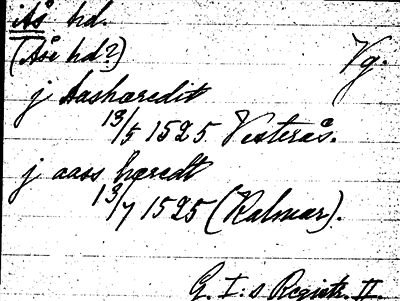 Ås hd.
(Åse hd?) Vg.
j Aashæredit
13/5 1525 Vesterås.
j aass hæredt
13/7 1525 (Kalmar).
G. I:s Registr. II.